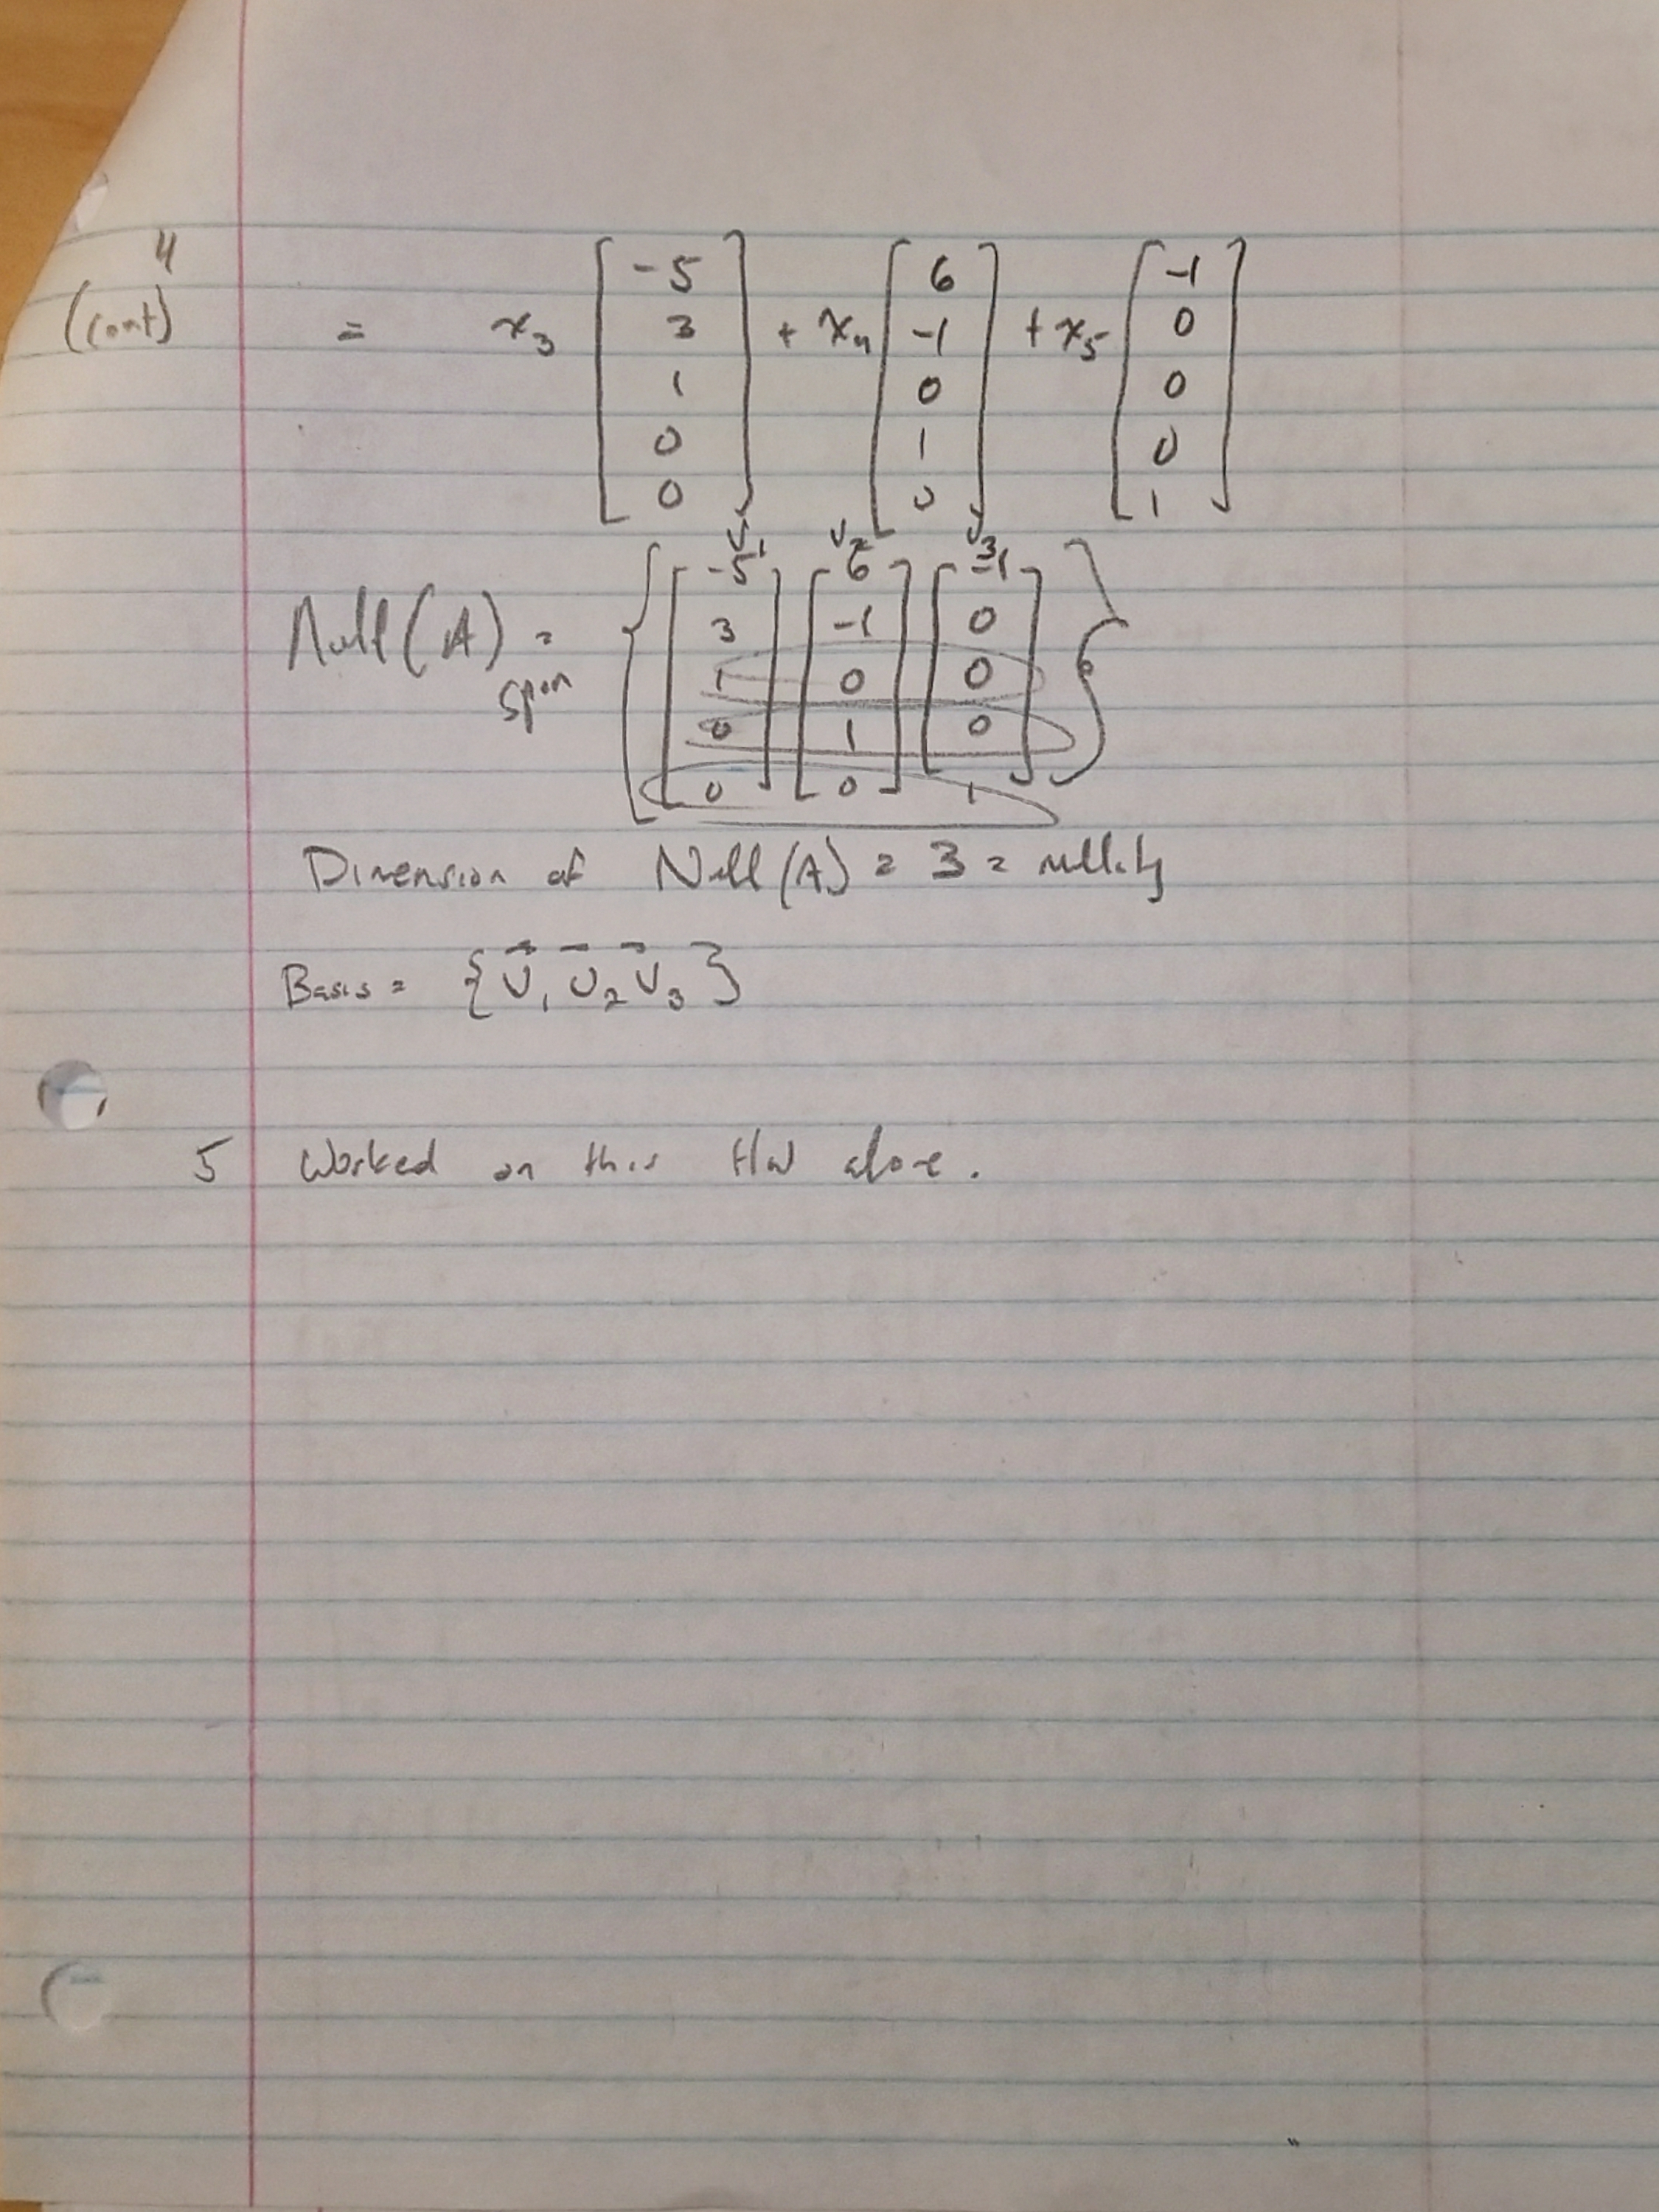 4
(cont) = x₃ [-5 3 1 0 0] + x₄ [6 -1 0 1 0] + x₅ [-1 0 0 0 1]
v₁ v₂ v₃
Null(A) = span { [-5 3 1 0 0] [6 -1 0 1 0] [-1 0 0 0 1] }
Dimension of Null(A) = 3 = nullity
Basis = {v⃗₁ v⃗₂ v⃗₃}
5 Worked on this HW alone.